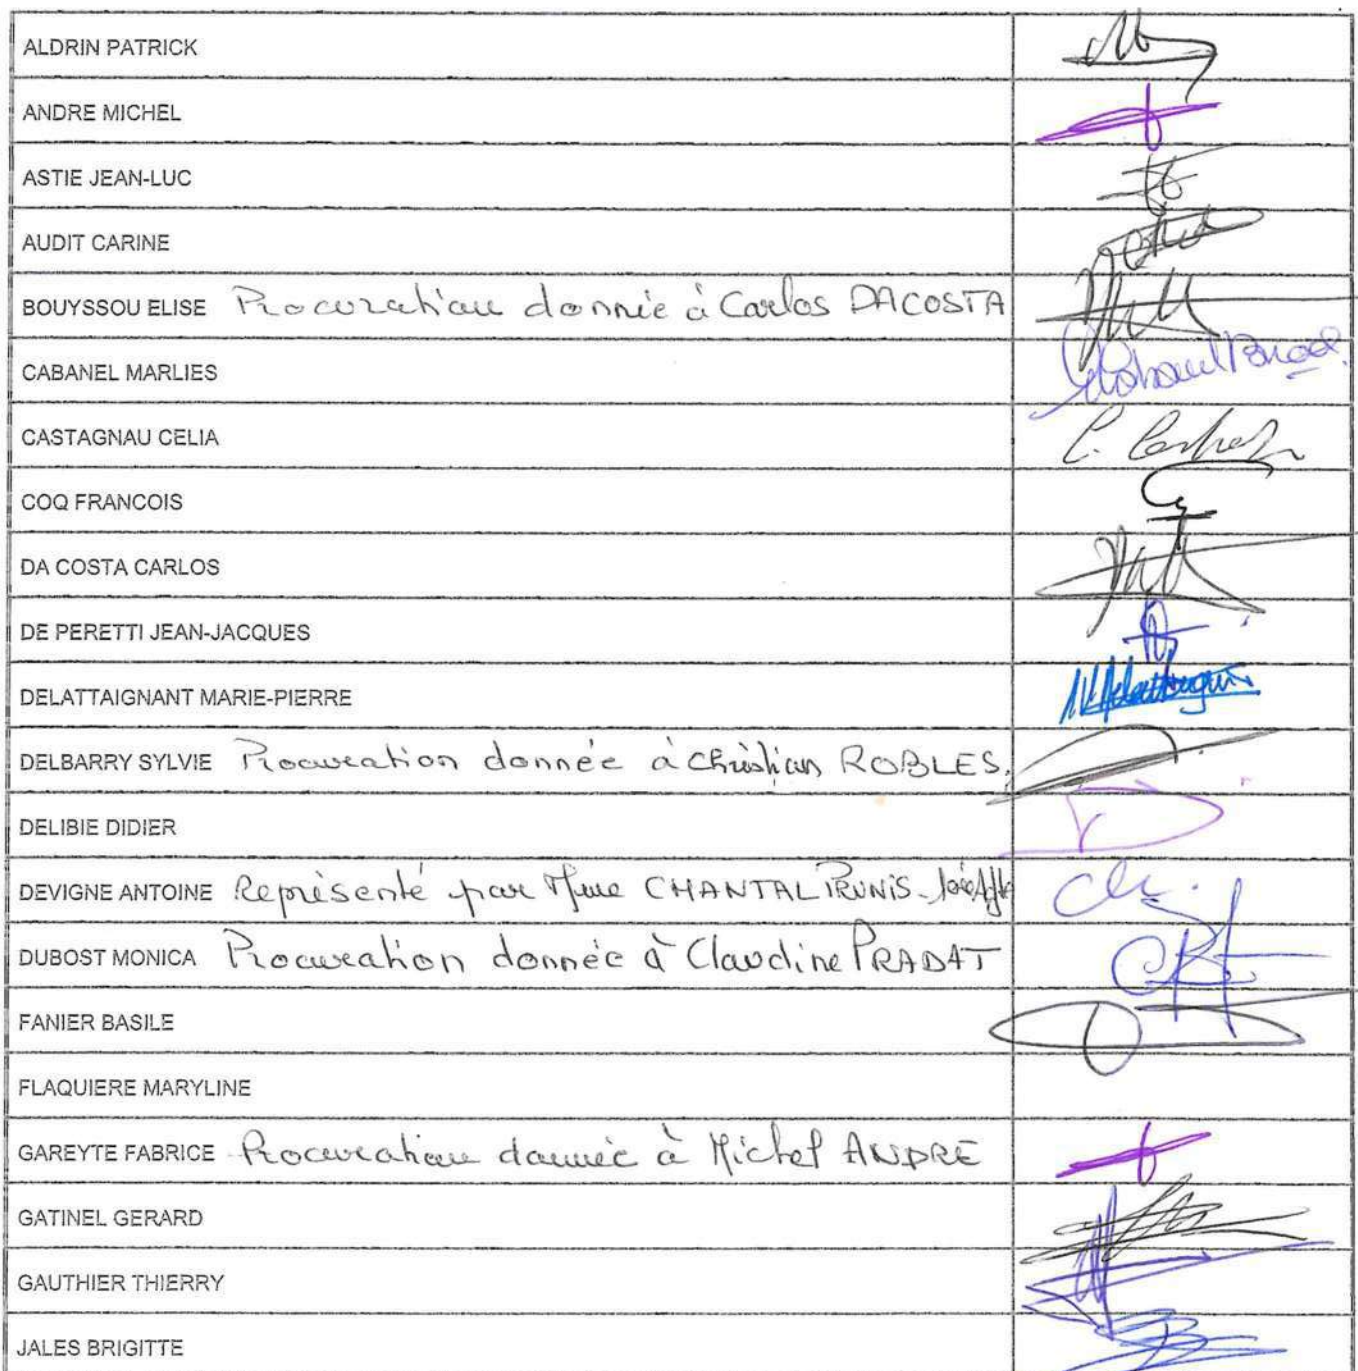 ALDRIN PATRICK
ANDRE MICHEL
ASTIE JEAN-LUC
AUDIT CARINE
BOUYSSOU ELISE Procuration donnée à Carlos DACOSTA
CABANEL MARLIES
CASTAGNAU CELIA
COQ FRANCOIS
DA COSTA CARLOS
DE PERETTI JEAN-JACQUES
DELATTAIGNANT MARIE-PIERRE
DELBARRY SYLVIE Procuration donnée à Christian ROBLES.
DELIBIE DIDIER
DEVIGNE ANTOINE Représenté par Mme CHANTAL PRUNIS
DUBOST MONICA Procuration donnée à Claudine PRADAT
FANIER BASILE
FLAQUIERE MARYLINE
GAREYTE FABRICE Procuration donnée à Michel ANDRE
GATINEL GERARD
GAUTHIER THIERRY
JALES BRIGITTE